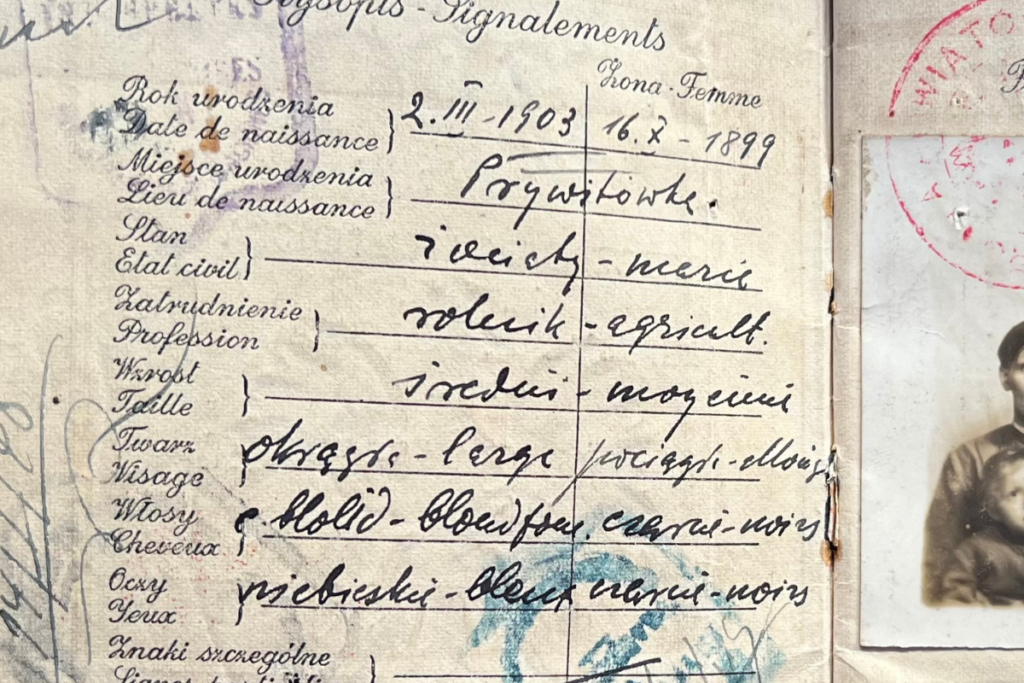 Rysopis - Signalements
Żona - Femme
Rok urodzenia
Date de naissance } 2.III-1903 16.X-1899
Miejsce urodzenia
Lieu de naissance }
Stan
Etat civil } - marié
Zatrudnienie
Profession } rolnik - agricult.
Wzrost
Taille } średni - moyenne
Twarz
Visage } okrągła - large pociągła -
Włosy
Cheveux } c. blond - blond czarne - noirs
Oczy
Yeux } niebieskie - bleux czarne - noirs
Znaki szczególne